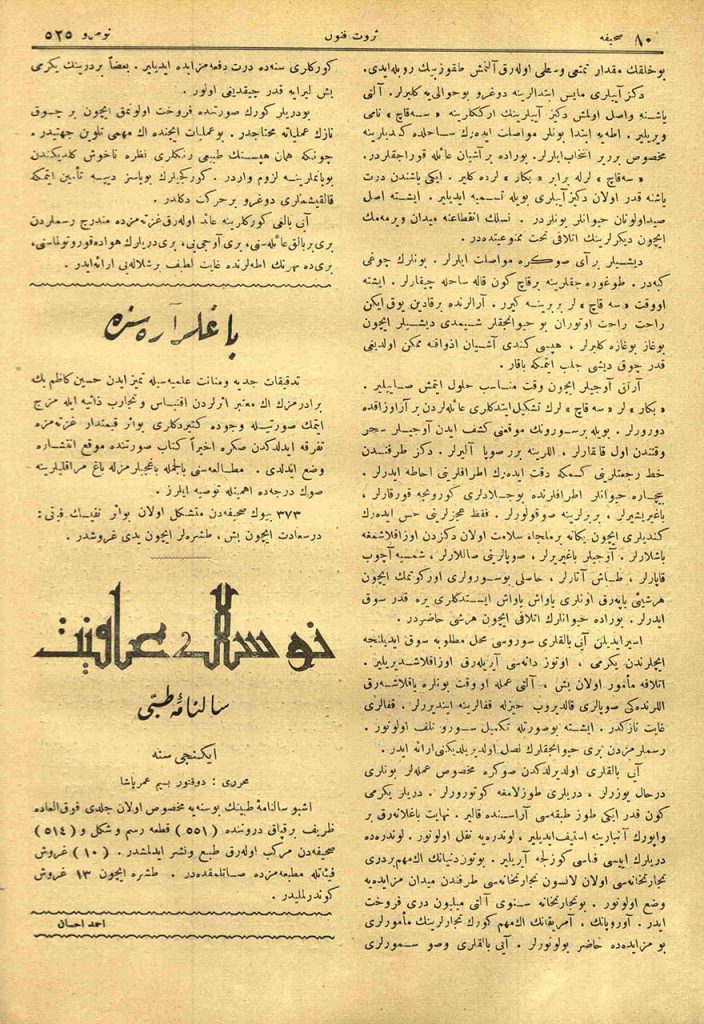 ٨٠ صحیفه
ثروت فنون
نومرو ٥٢٥
بوخلقك مقدار تمتعی وسطی اوله‌رق آلتمش طقوزبیك روبله‌ایدی.
دكز آییلری مایس ابتدالرینه دوغرو بوحوالی‌یه كلیرلر. آلتی
یاشنه واصل اولمش دكز آییلرینك ارككلرینه «سه‌قاچ» نامی
ویریلیر. اطه‌یه ابتدا بونلر مواصلت ایده‌رك ساحلده كندیلرینه
مخصوص بریر انتخاب‌ایلرلر. بوراده برآشیان عائله قوراجقلردر.
«سه‌قاچ» لرله برابر «بكار» لرده كلیر. ایكی یاشندن درت
یاشنه قدر اولان دكزآییلری بویله تسمیه ایدیلیر. ایشته اصل
صیداولونان حیوانلر بونلردر. نسلك انقطاعنه میدان ویرمه‌مك
ایچون دیكرلرینك اتلافی تحت ممنوعیتده‌در.
دیشیلر برآی صوكره مواصلت ایلرلر. بونلرك چوغی
كبه‌در. طوغوره جقلرینه برقاچ كون قاله ساحله چیقارلر. ایشته
اووقت «سه قاچ» لر بربرینه كیرر. آرالرنده برقادین یوق ایكن
راحت راحت اوتوران بو حیوانجقلر شیمدی دیشیلر ایچون
بوغاز بوغازه كلیرلر، هپسی كندی آشیان اذواقنه ممكن اولدیغی
قدر چوق دیشی جلب ایتمكه باقار.
آرتی آوجیلر ایچون وقت مناسب حلول ایتمش صاییلیر.
«بكار» لر «سه قاچ» لرك تشكیل ایتدكلری عائله‌لردن برآز اوزاقده
دورورلر. بویله برسورونك موقعنی كشف ایدن آوجیلر سحر
وقتندن اول قالقارلر، اللرینه برر صوپا آلیرلر. دكز طرفندن
خط رجعتلرینی كسمكه دقت ایده‌رك اطرافلرینی احاطه ایدرلر.
بیچاره حیوانلر اطرافلرنده بوجلادلری كورونجه قورقارلر،
باغیریشیرلر، بربرلرینه صوقولورلر. فقط عجزلرینی حس ایده‌رك
كندیلری ایچون یكانه برملجاء سلامت اولان دكزدن اوزاقلاشمغه
باشلارلر. آوجیلر باغیریرلر، صوپالرینی صاللارلر، شمسیه آچوب
قاپارلر، طاش آتارلر، حاصلی بوسورولری اوركوتمك ایچون
هرشیئی یاپه‌رق اونلری یاواش یاواش ایستدكلری یره قدر سوق
ایدرلر. بوراده حیوانلرك اتلافی ایچون هرشی حاضردر.
اسیر ایدیلن آیی بالقلری سوروسی محل مطلوبه سوق ایدیلنجه
ایچلرندن یكرمی، اوتوز دانه‌سی آیریله‌رق اوزاقلاشدیریلیر.
اتلافه مأمور اولان بش، آلتی عمله اووقت بونلره یاقلاشه‌رق
اللرنده‌كی صوپالری قالدیروب حیزله قفالرینه ایندیررلر. قفالری
غایت نازكدر. ایشته بوصورتله تكمیل سورو تلف اولونور.
رسملرمزدن بری حیوانجقلرك نصل اولدیریلدیكنی ارائه ایدر.
آیی بالقلری اولدیرلدكدن صوكره مخصوص عمله‌لر بونلری
درحال یوزرلر، دریلری طوزلامغه كوتورورلر. دریلر یكرمی
كون قدر ایكی طوز طبقه‌سی آراسنده قالیر. نهایت باغلانه‌رق بر
واپورك آنبارینه استیف‌ایدیلیر، لوندره‌یه نقل اولونور. لوندره‌ده
دریلرك اییسی فناسی كوزلجه آیریلیر. بوتون دنیانك اك‌مهم‌دری
تجارتخانه‌سی اولان لانسون تجارتخانه‌سی طرفندن میدان مزایده‌یه
وضع اولونور. بوتجارتخانه سنوی آلتی میلیون دری فروخت
ایدر. آوروپانك، آمریقانك اك‌مهم كورك تجارلرینك مأمورلری
بو مزایده‌ده حاضر بولونورلر. آیی بالقلری وصو سمورلری
كوركلری سنه‌ده درت دفعه مزایده ایدیلیر. بعضاً بردرینك یكرمی
بش لیرایه قدر چیقدیغی اولور.
بودریلر كورك صورتنده فروخت اولونمق ایچون بر چوق
نازك عملیاته محتاجدر. بوعملیات ایچنده اك مهمی تلوین جهتیدر.
چونكه همان هپسنك طبیعی رنكلری نظره ناخوش كلدیكندن
بویانملرینه لزوم واردر. كوركجیلرك بویاسز دییه تأمین ایتمكه
قالقیشمه‌لری دوغرو برحركت دكلدر.
آیی بالغی كوركلرینه عائد اوله‌رق غزته‌مزده مندرج رسملردن
بری بربالق عائله‌سنی، بری آوجی‌یی، بری دریلرك هواده قوروتولمه‌سنی،
بری‌ده مهرنك اطه‌لرنده غایت لطیف برشلاله‌یی ارائه ایدر.
باغلر آره‌سنده
تدقیقات جدیه ومتانت علمیه‌سیله تمیز ایدن حسین كاظم بك
برادرمزك اك معتبر اثرلردن اقتباس وتجارب ذاتیه ایله مزج
ایتمك صورتیله وجوده كتیردكلری بواثر قیمتدار غزته‌مزه
تفرقه ایدلدكدن صكره اخیراً كتاب صورتنده موقع انتشاره
وضع ایدلدی. مطالعه‌سنی بالجمله باغجیلرمزله باغ مراقلیلرینه
صوك درجه‌ده اهمیتله توصیه ایلرز.
٣٧٣ بیوك صحیفه‌دن متشكل اولان بواثر نفیسك فیئتی:
درسعادت ایچون بش، طشره‌لر ایچون یدی غروشدر.
نوسال عافیت
سالنامۀ طبی
ایكنجی سنه
محرری: دوقتور بسیم عمرپاشا
اشبو سالنامۀ طبینك بوسنه‌یه مخصوص اولان جلدی فوق‌العاده
ظریف برقپاق دروننده (٥٥١) قطعه رسم و شكل و (٥١٤)
صحیفه‌دن مركب اوله‌رق طبع ونشر ایدلمشدر. (١٠) غروش
فیئاتله مطبعه‌مزده صاتلمقده‌در. طشره ایچون ١٣ غروش
كوندرلملیدر.
احمد احسان